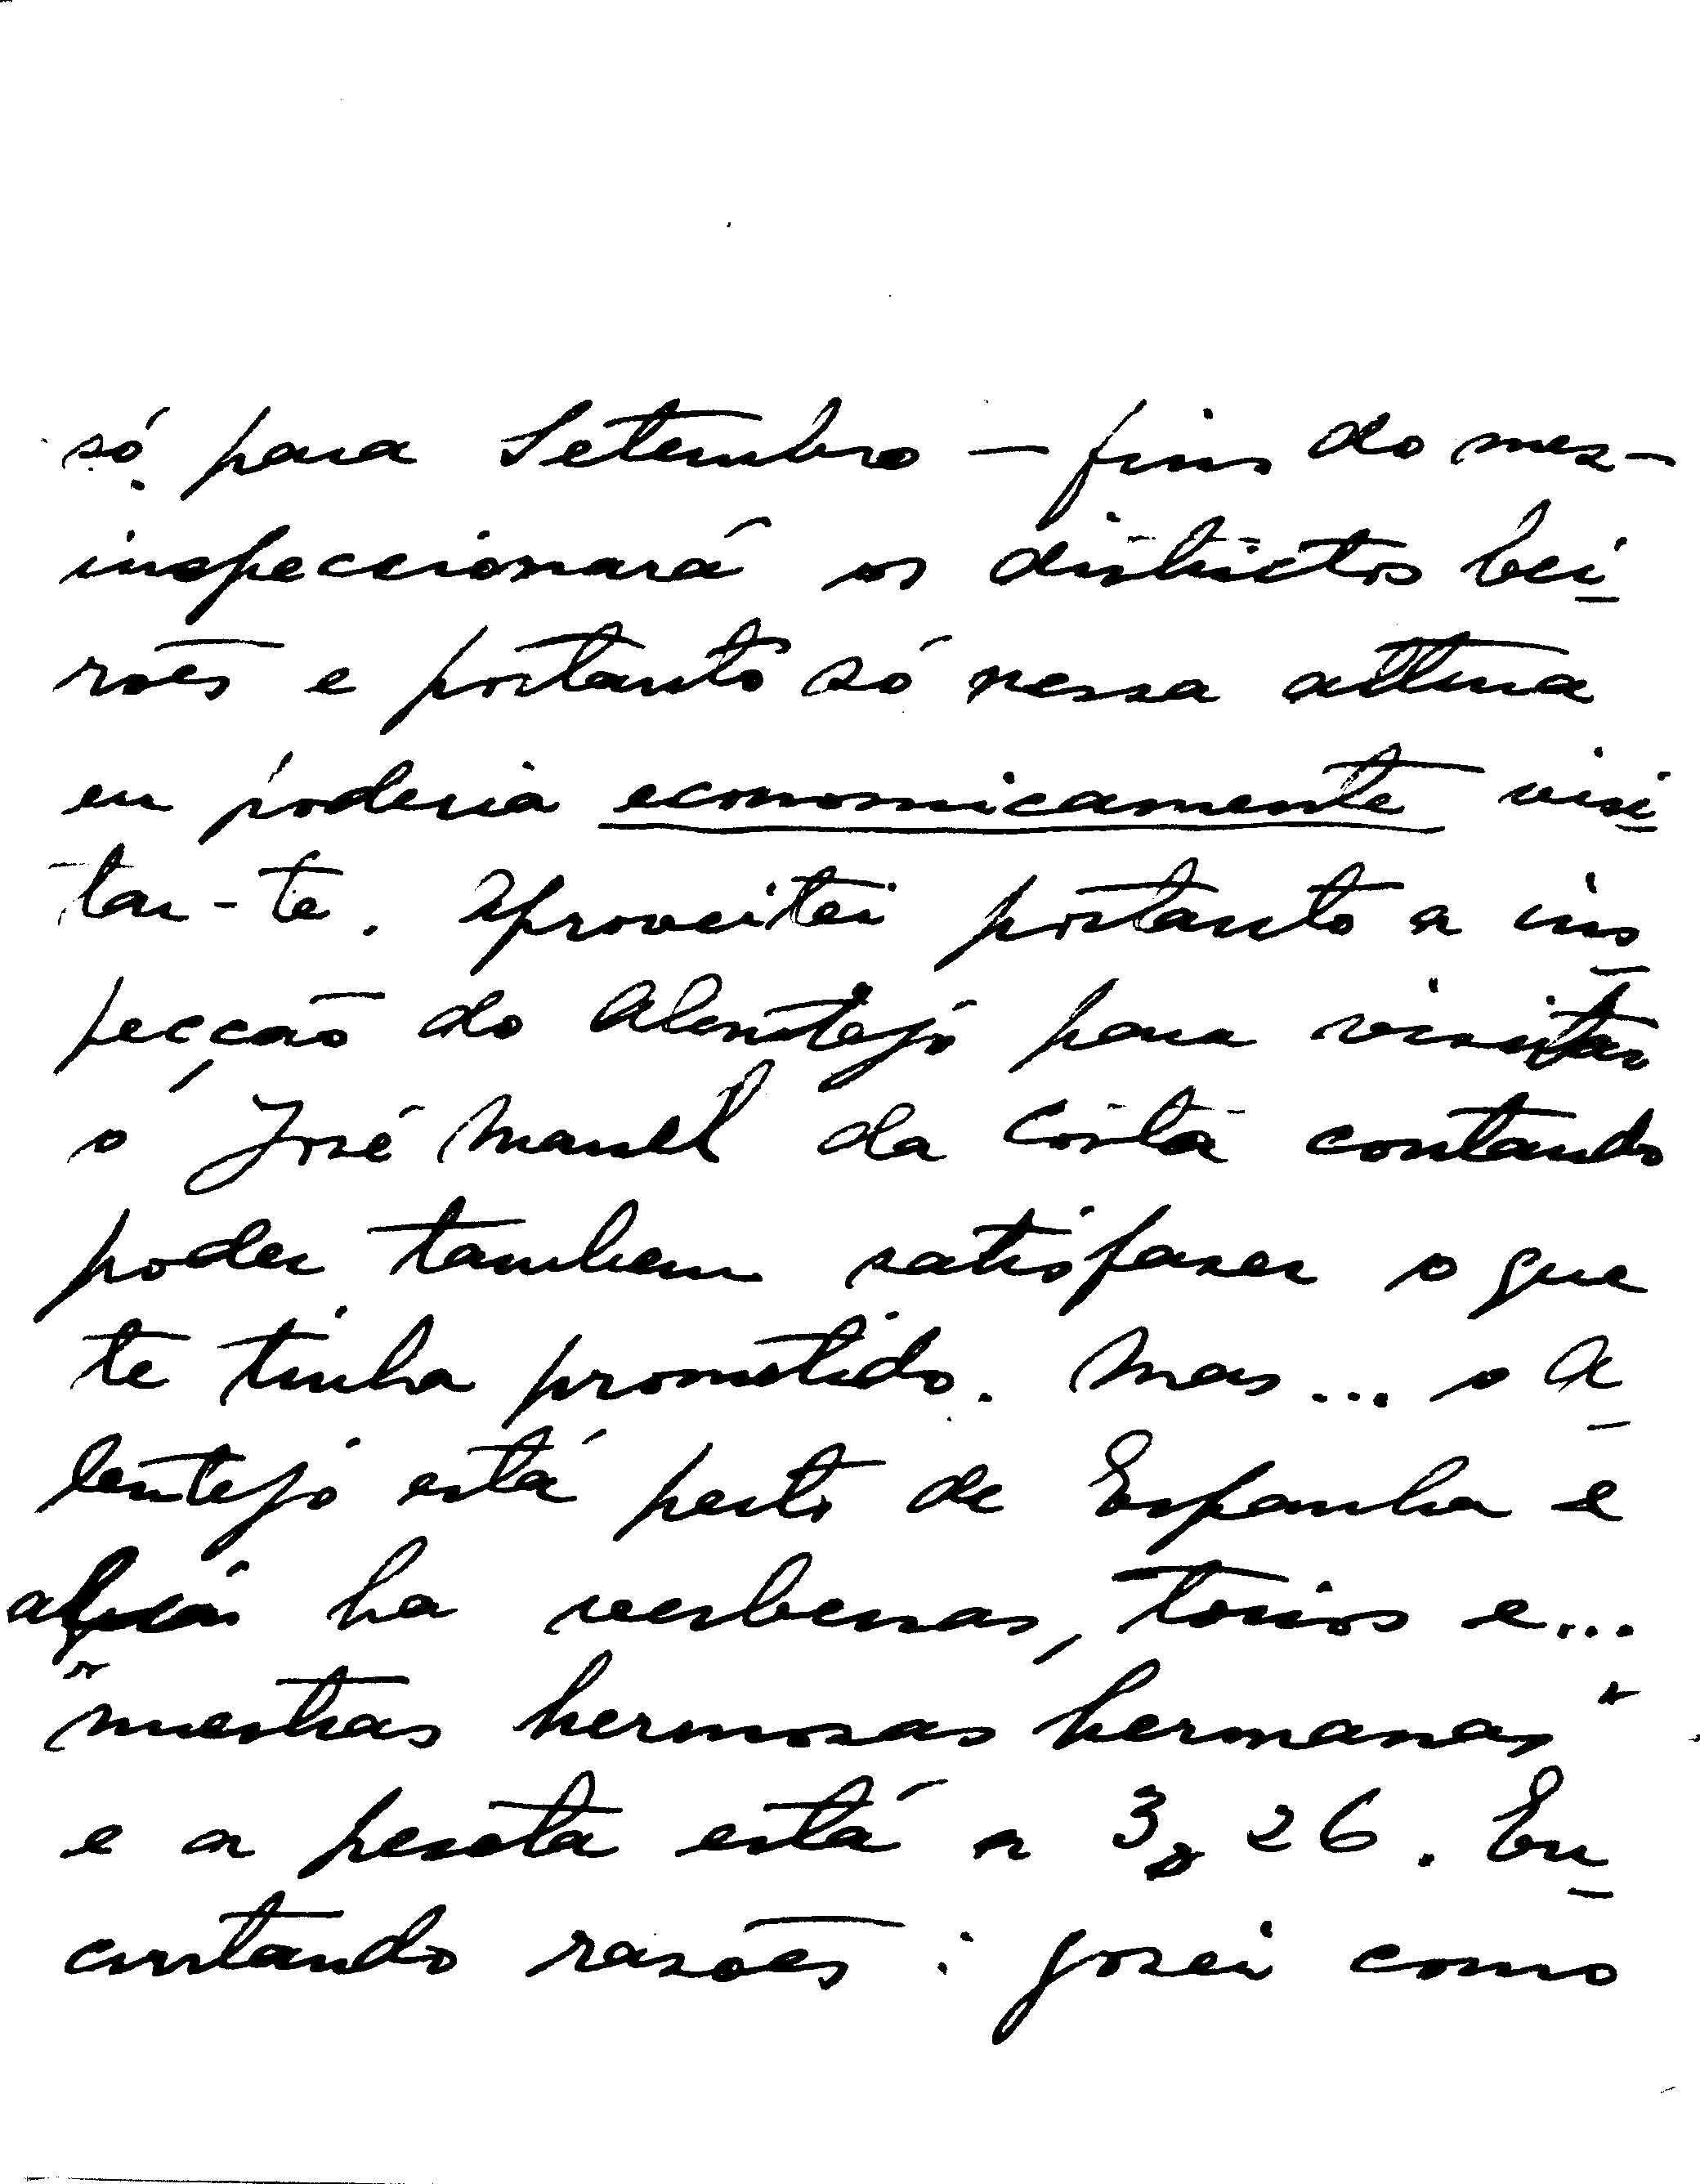 só para Setembro — fins do mez —
inspeccionará os districtos bei
rões e portanto só nessa altura
eu poderia economicamente visi
tar-te. Aproveitei portanto a ins
pecção do Alemtejo para visitar
o José Manel da Costa contando
poder tambem satisfazer o que
te tinha prometido. Mas... o A
lentejo está perto de Espanha e
ha verbenas, toiros e...
"nuestras hermosas hermanas"
e a peseta está a 3$26. En
curtando rasões: gosei como